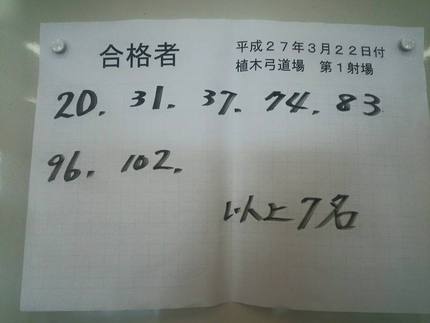 合格者
平成27年3月22日付
植木弓道場 第1射場
20. 31. 37. 74. 83
96. 102.
以上7名